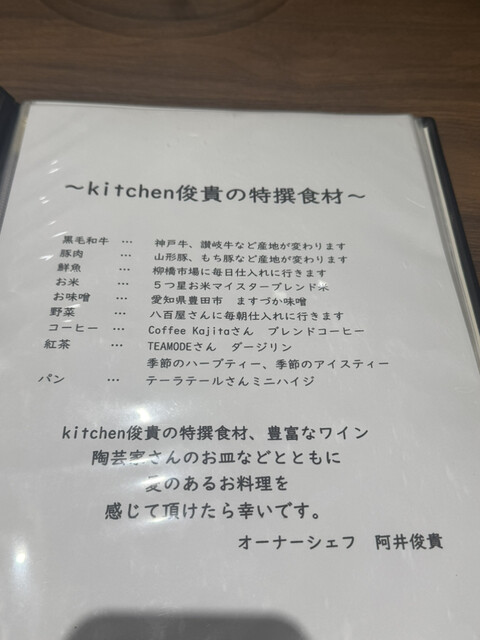 ～kitchen俊貴の特撰食材～
黒毛和牛 … 神戸牛、讃岐牛など産地が変わります
豚肉 … 山形豚、もち豚など産地が変わります
鮮魚 … 柳橋市場に毎日仕入れに行きます
お米 … ５つ星お米マイスターブレンド米
お味噌 … 愛知県豊田市　ますづか味噌
野菜 … 八百屋さんに毎朝仕入れに行きます
コーヒー … Coffee Kajitaさん　ブレンドコーヒー
紅茶 … TEAMODEさん　ダージリン
季節のハーブティー、季節のアイスティー
パン … テーラテールさんミニハイジ
kitchen俊貴の特撰食材、豊富なワイン
陶芸家さんのお皿などとともに
のあるお料理を
感じて頂けたら幸いです。
オーナーシェフ　阿井俊貴